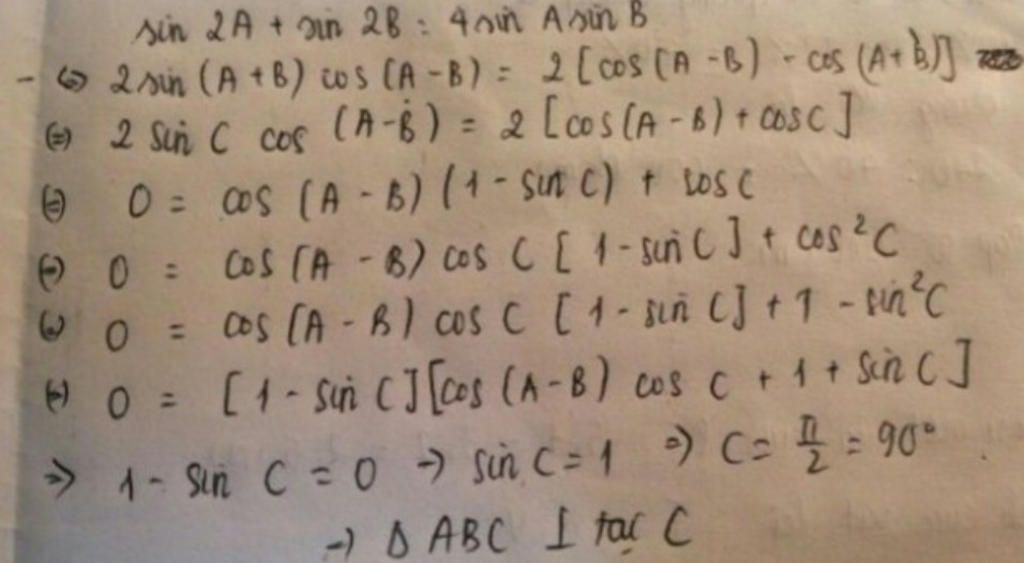 sin 2A + sin 2B = 4 sin A sin B
- (=) 2 sin (A + B) cos (A - B) = 2 [cos (A - B) - cos (A + B)]
(=) 2 sin C cos (A - B) = 2 [cos (A - B) + cos C]
(=) 0 = cos (A - B) (1 - sin C) + cos C
(=) 0 = cos (A - B) cos C [1 - sin C] + cos²C
(=) 0 = cos (A - B) cos C [1 - sin C] + 1 - sin²C
(=) 0 = [1 - sin C] [cos (A - B) cos C + 1 + sin C]
=> 1 - sin C = 0 -> sin C = 1 => C = π/2 = 90°
-> Δ ABC ⊥ tại C